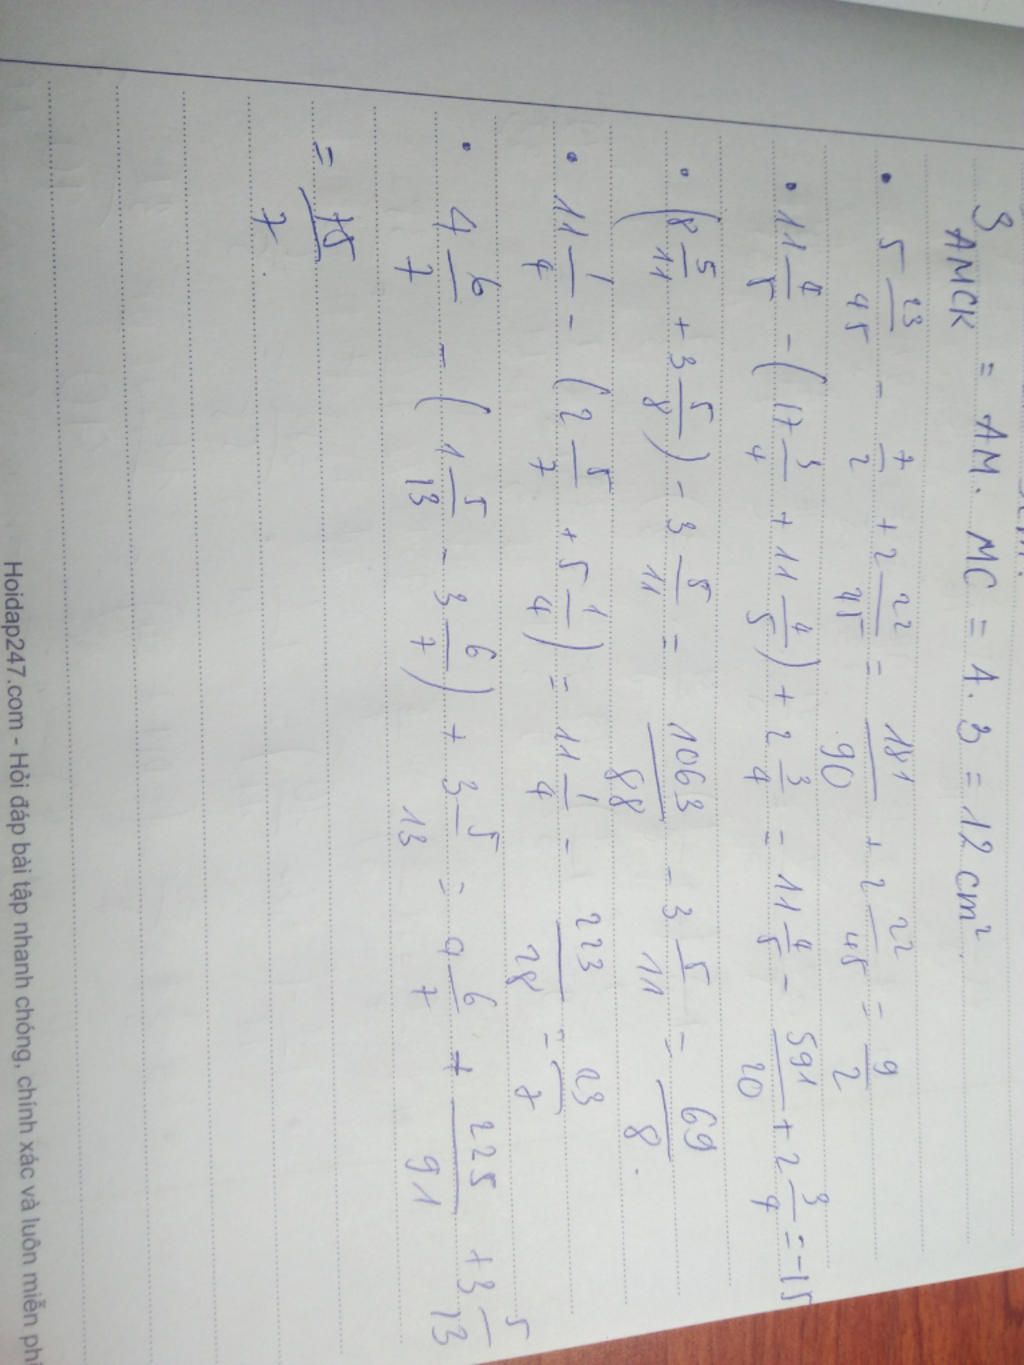 S AMCK = AM. MC = 4. 3 = 12 cm²
• 5 23/45 - 7/2 + 2 22/45 = 181/90 + 2 22/45 = 9/2
• 11 4/5 - (17 3/4 + 11 4/5) + 2 3/4 = 11 4/5 - 591/20 + 2 3/4 = -15
• (8 5/11 + 3 5/8) - 3 5/11 = 1063/88 - 3 5/11 = 69/8.
• 11 1/4 - (2 5/7 + 5 1/4) = 11 1/4 - 223/28 = 23/7
• 4 6/7 - (1 5/13 - 3 6/7) + 3 5/13 = 4 6/7 + 225/91 + 3 5/13
= 75/7.
Hoidap247.com - Hỏi đáp bài tập nhanh chóng, chính xác và luôn miễn phí